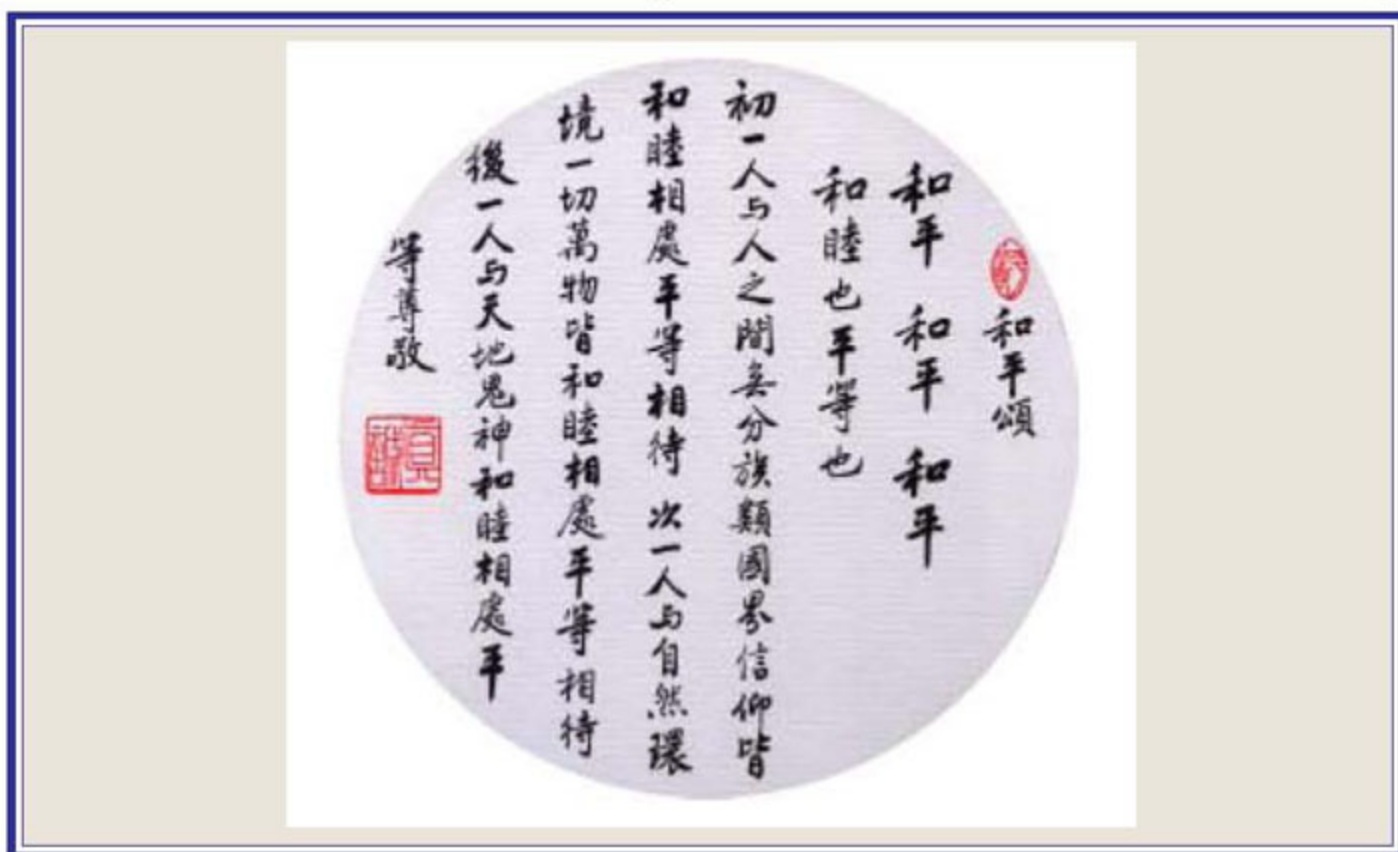 和平頌
和平 和平 和平
和睦也平等也
初一人与人之間无分族類國界信仰皆
和睦相處平等相待 次一人与自然環
境一切萬物皆和睦相處平等相待
後一人与天地鬼神和睦相處平
等尊敬